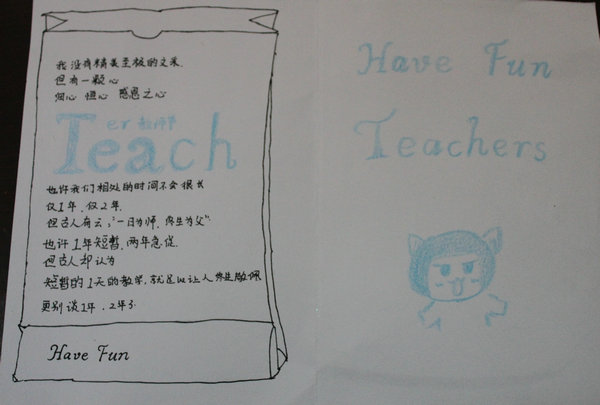 我没有精美至极的文采.
但有一颗心
归心 恒心 感恩之心
er 教师节
Teach
也许我们相处的时间不会很长
仅1年.仅2年.
但古人有云:"一日为师,终生为父".
也许1年短暂,两年急促.
但古人却认为
短暂的1天的教学,就足以让人终生敬佩
更别谈1年.2年了.
Have Fun
Have Fun
Teachers